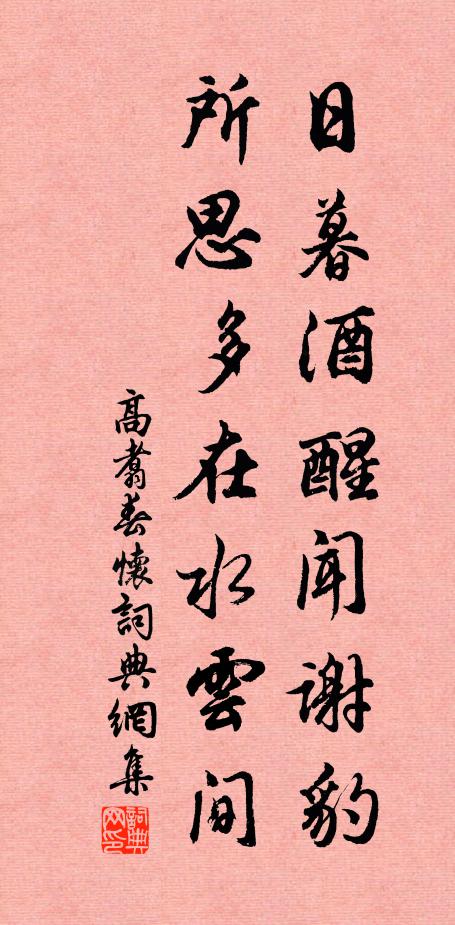 日暮酒醒闻谢豹
所思多在水雲间
高翥春懷詞典網集
詞典网印